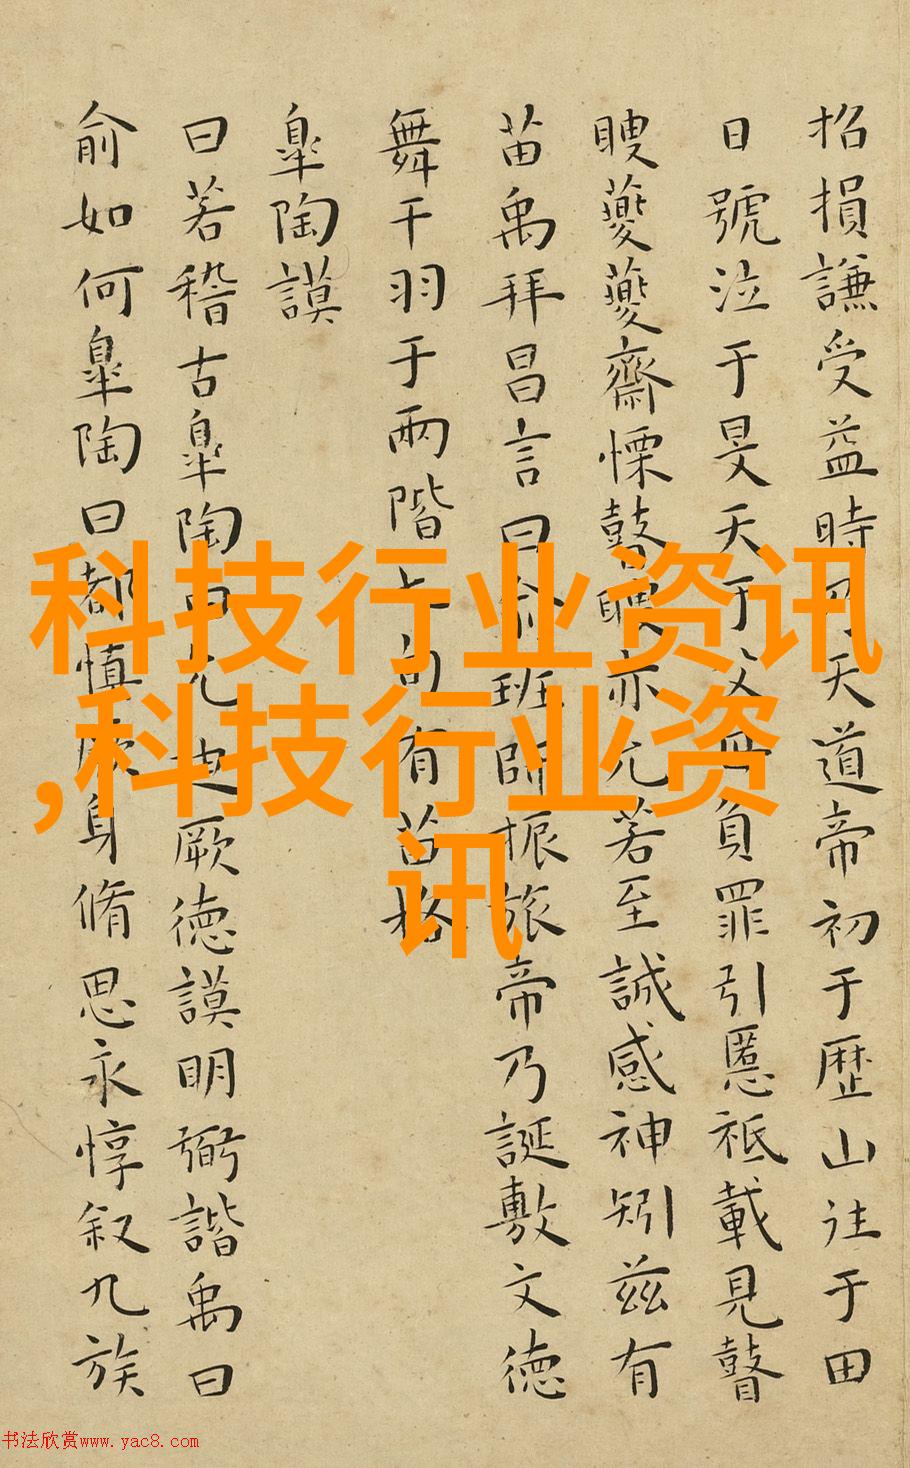 招損謙受益時乃天道帝初于歴山往于田
日號泣于旻天于父母負罪引慝祗載見瞽
瞍夔夔齋慄瞽瞍亦允若至誠感神矧兹有
苗禹拜昌言曰俞班師振旅帝乃誕敷文徳
舞干羽于兩階七旬有苗格
皐陶謨
曰若稽古皐陶曰允迪厥徳謨明弼諧禹曰
俞如何皐陶曰都慎厥身脩思永惇叙九族
科技行业资讯
,科技行业资
讯
书法欣赏www.yac8.com